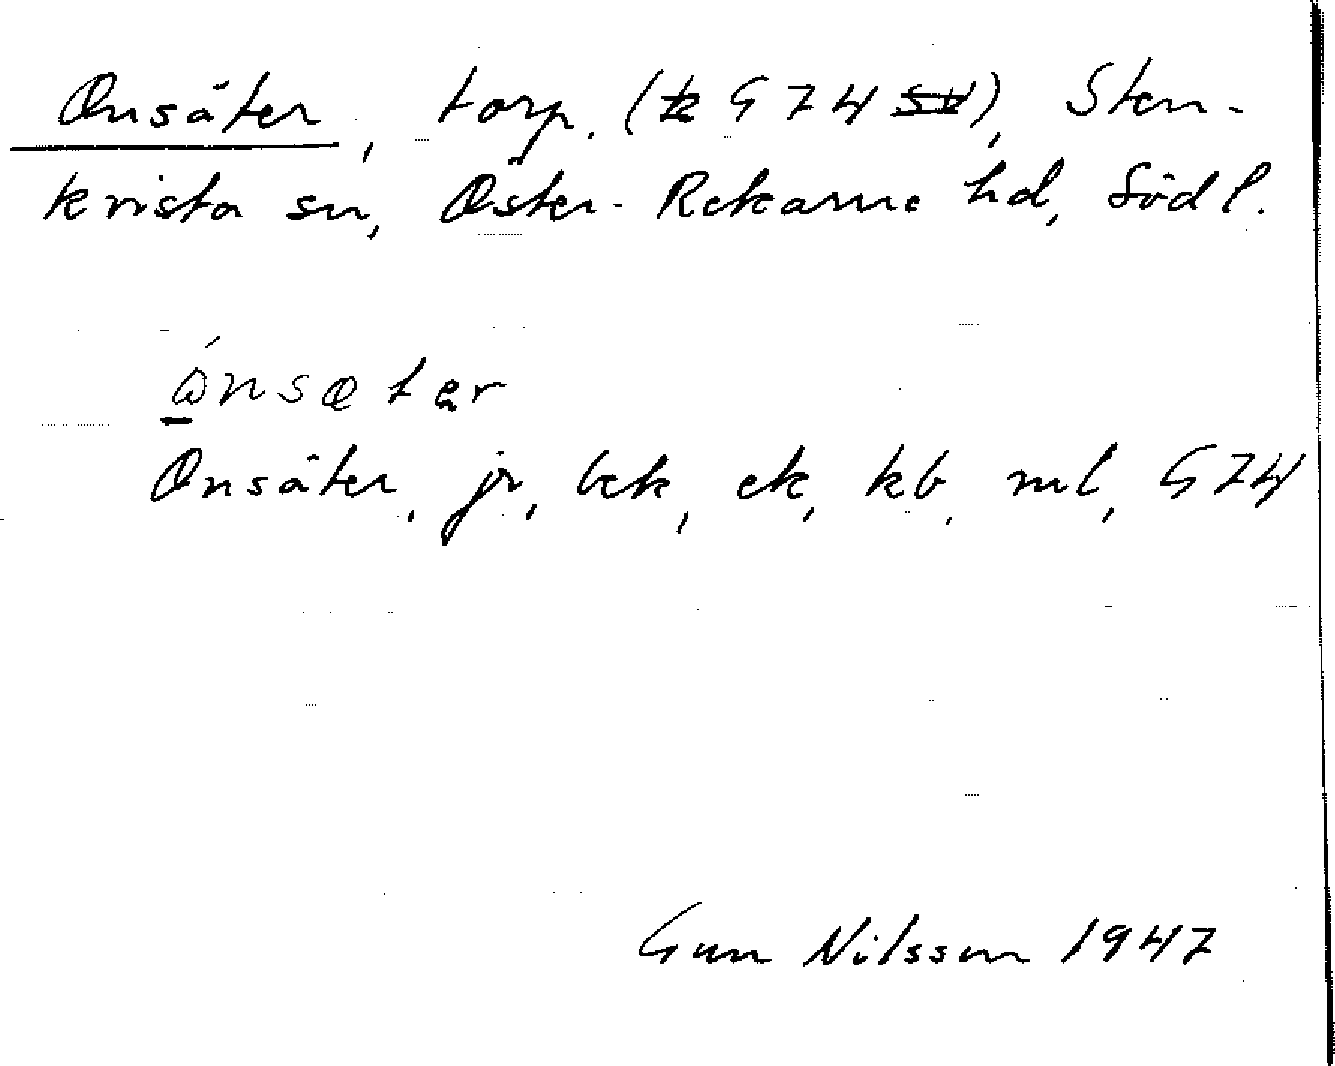 Onsäter, torp. (k G 74 SV), Sten-
krista sn, Öster-Rekarne hd, Södl.
ónsætęr
Onsäter, jr, bek, ek, kb, ml, G 74
Gun Nilsson 1947